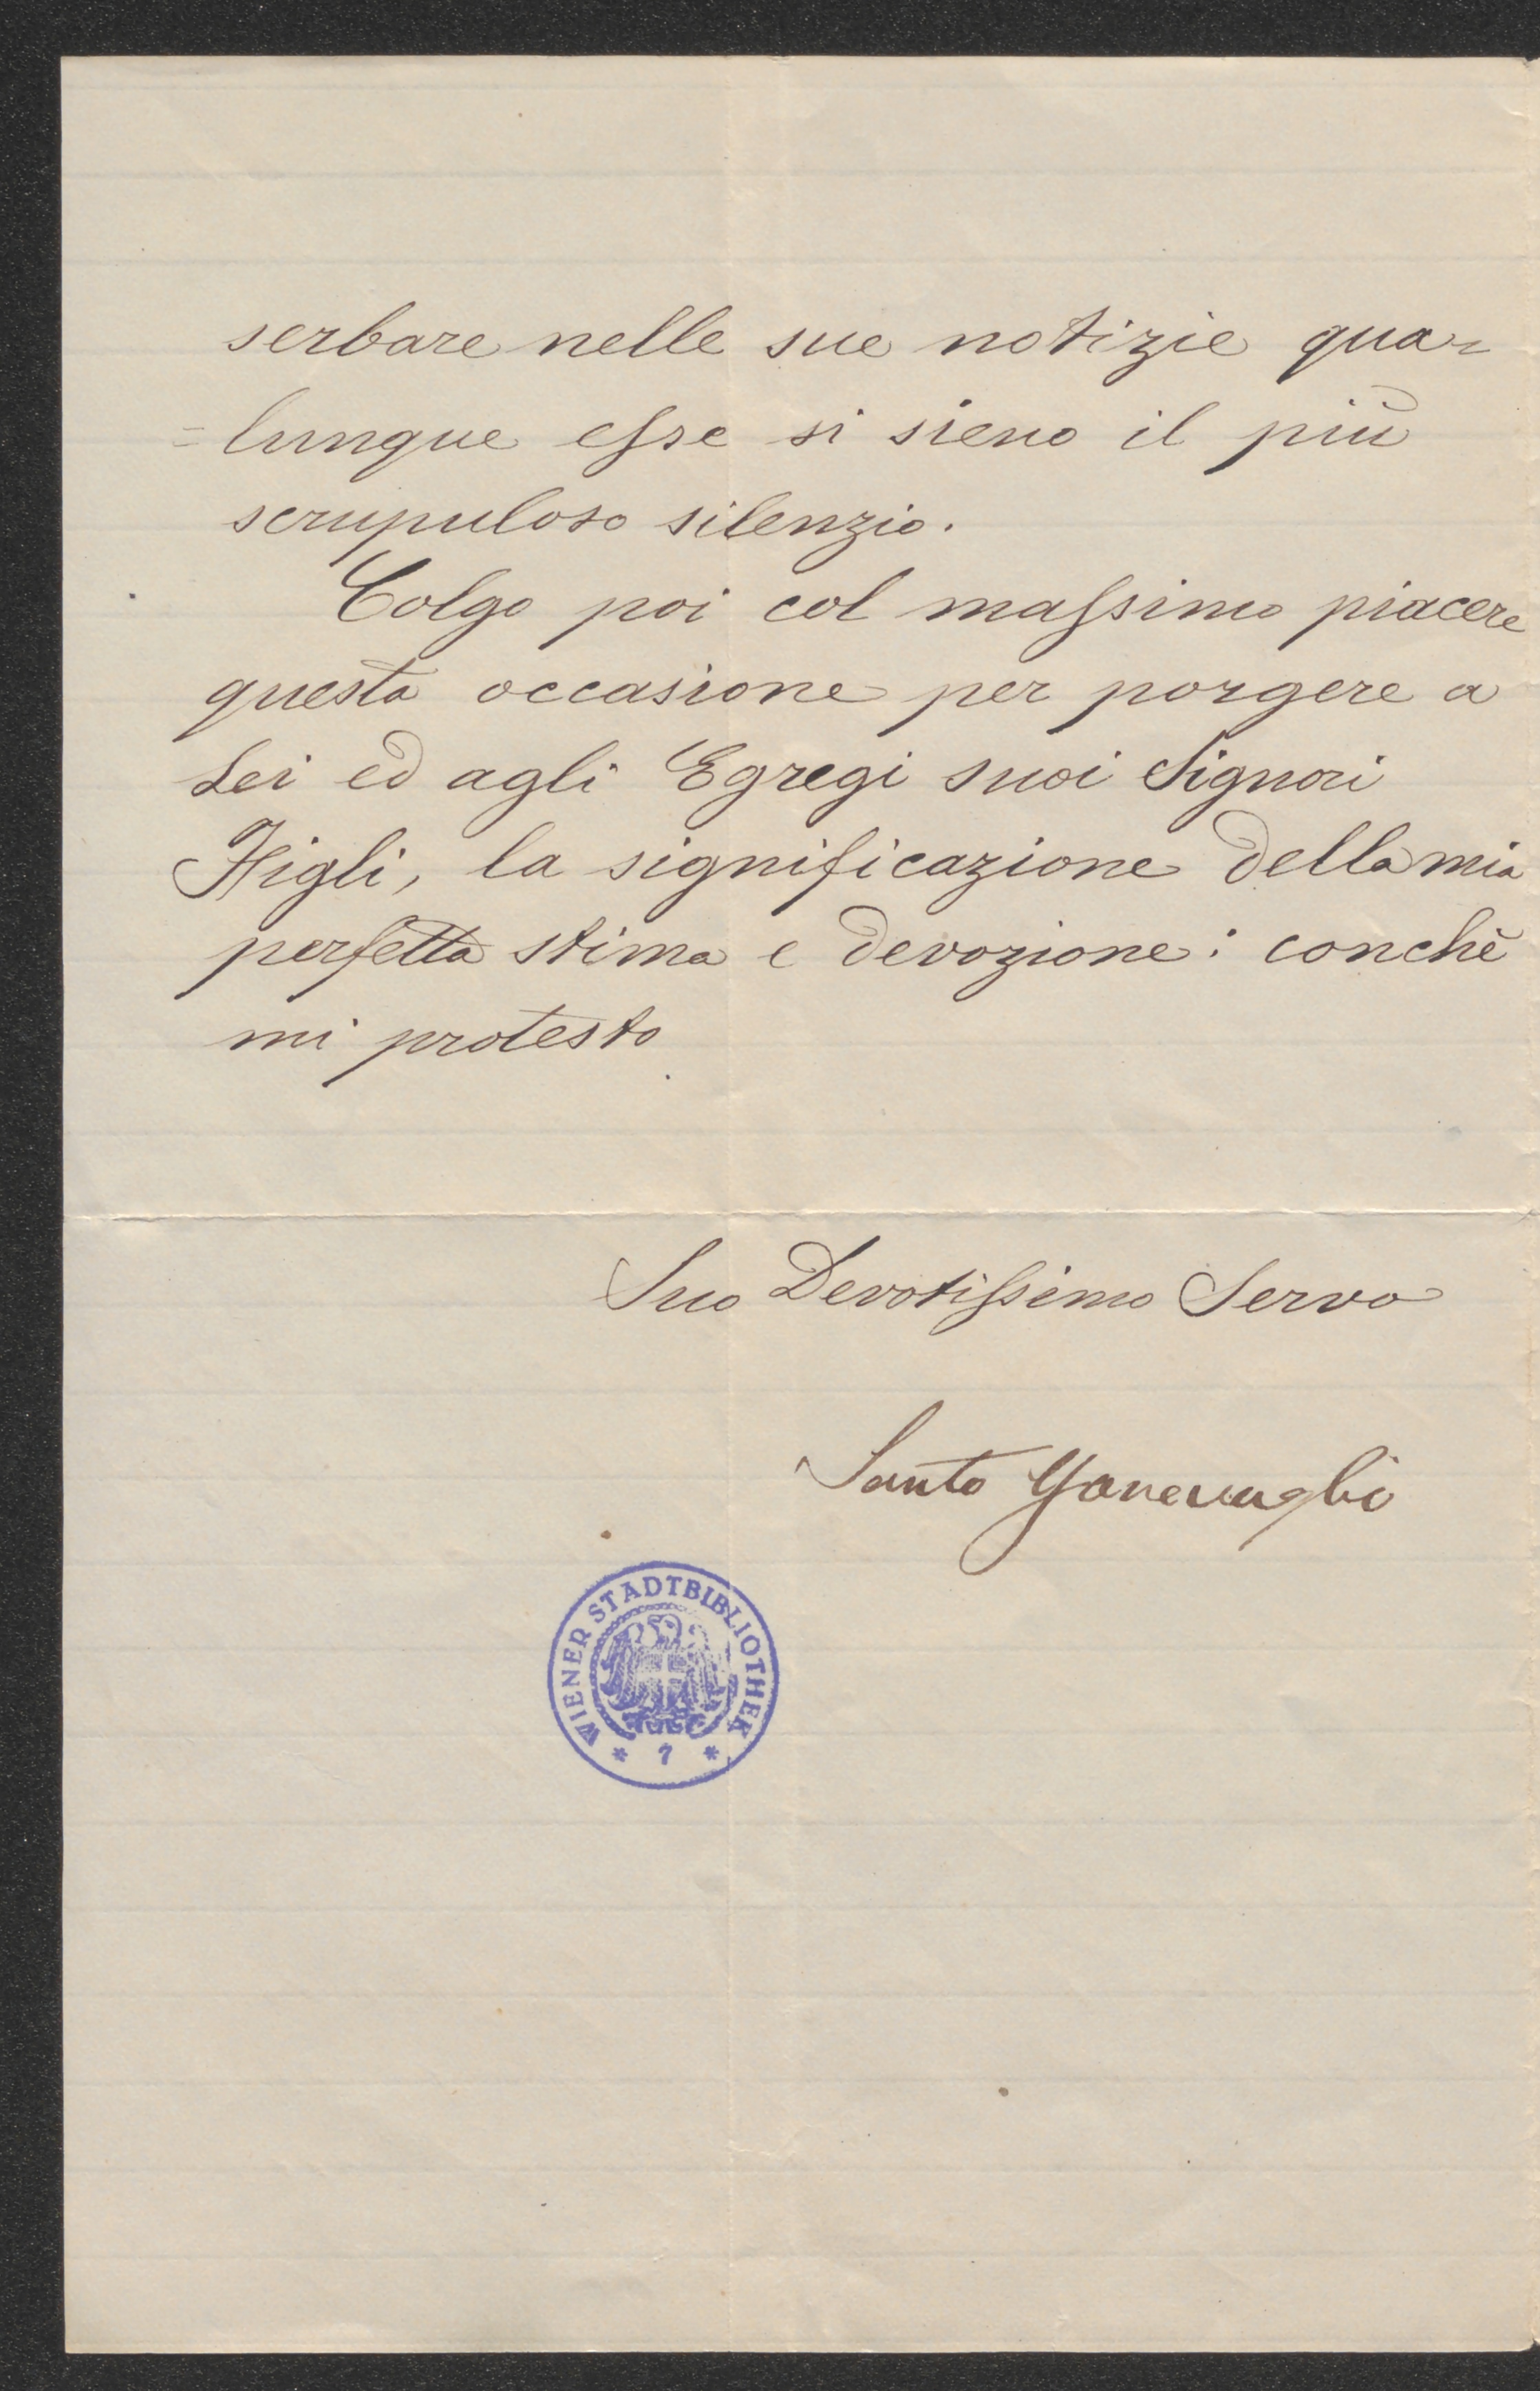 serbare nelle sue notizie qua=
=lunque esse si sieno il più
scrupuloso silenzio.
Colgo poi col massimo piacere
questa occasione per porgere a
Lei ed agli Egregi suoi Signori
Figli, la significazione della mia
perfetta stima e devozione: conchè
mi protesto
Suo Devotissimo Servo
Santo
WIENER STADTBIBLIOTHEK
* 7 *